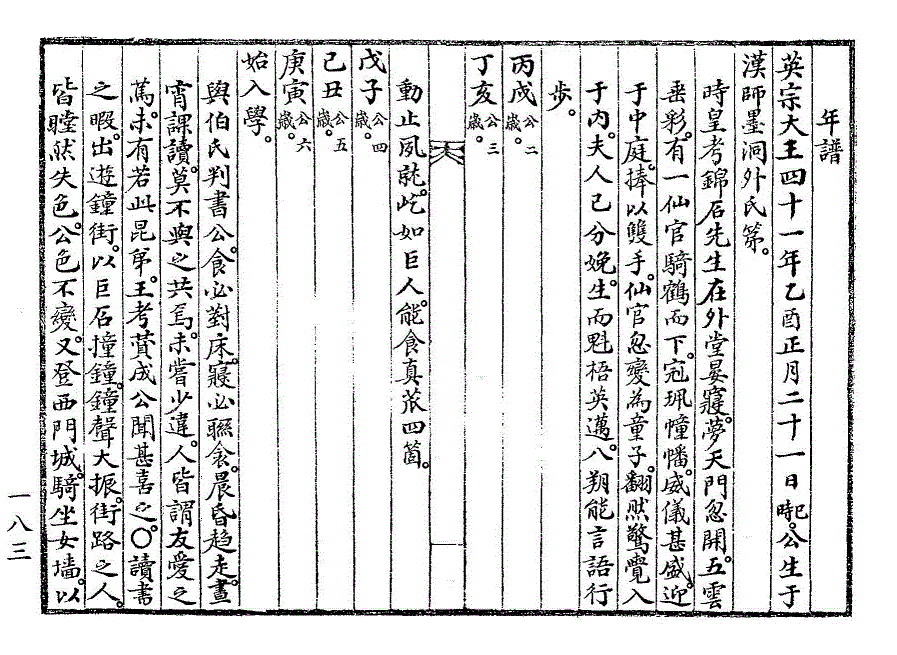 年譜
英宗大王四十一年乙酉正月二十一日時巳。公生于
漢師墨洞外氏第。
時皇考錦石先生在外堂晏寢。夢天門忽開。五雲
垂彩。有一仙官騎鶴而下。冠珮幢幡。威儀甚盛。迎
于中庭。捧以雙手。仙官忽變為童子。翻然驚覺。入
于內。夫人已分娩。生而魁梧英邁。八朔能言語行
步。
丙戌公二歲。
丁亥公三歲。
動止夙就。屹如巨人。能食真苽四箇。
戊子公四歲。
己丑公五歲。
庚寅公六歲。
始入學。
與伯氏判書公。食必對床。寢必聯衾。晨昏趍走。晝
宵課讀。莫不與之共焉。未嘗少違。人皆謂友愛之
篤。未有若此昆弟。王考賛成公聞甚喜之。○讀書
之暇。出遊鐘街。以巨石撞鐘。鐘聲大振。街路之人。
皆瞠然失色。公色不變。又登西門城。騎坐女墻。以
一八三